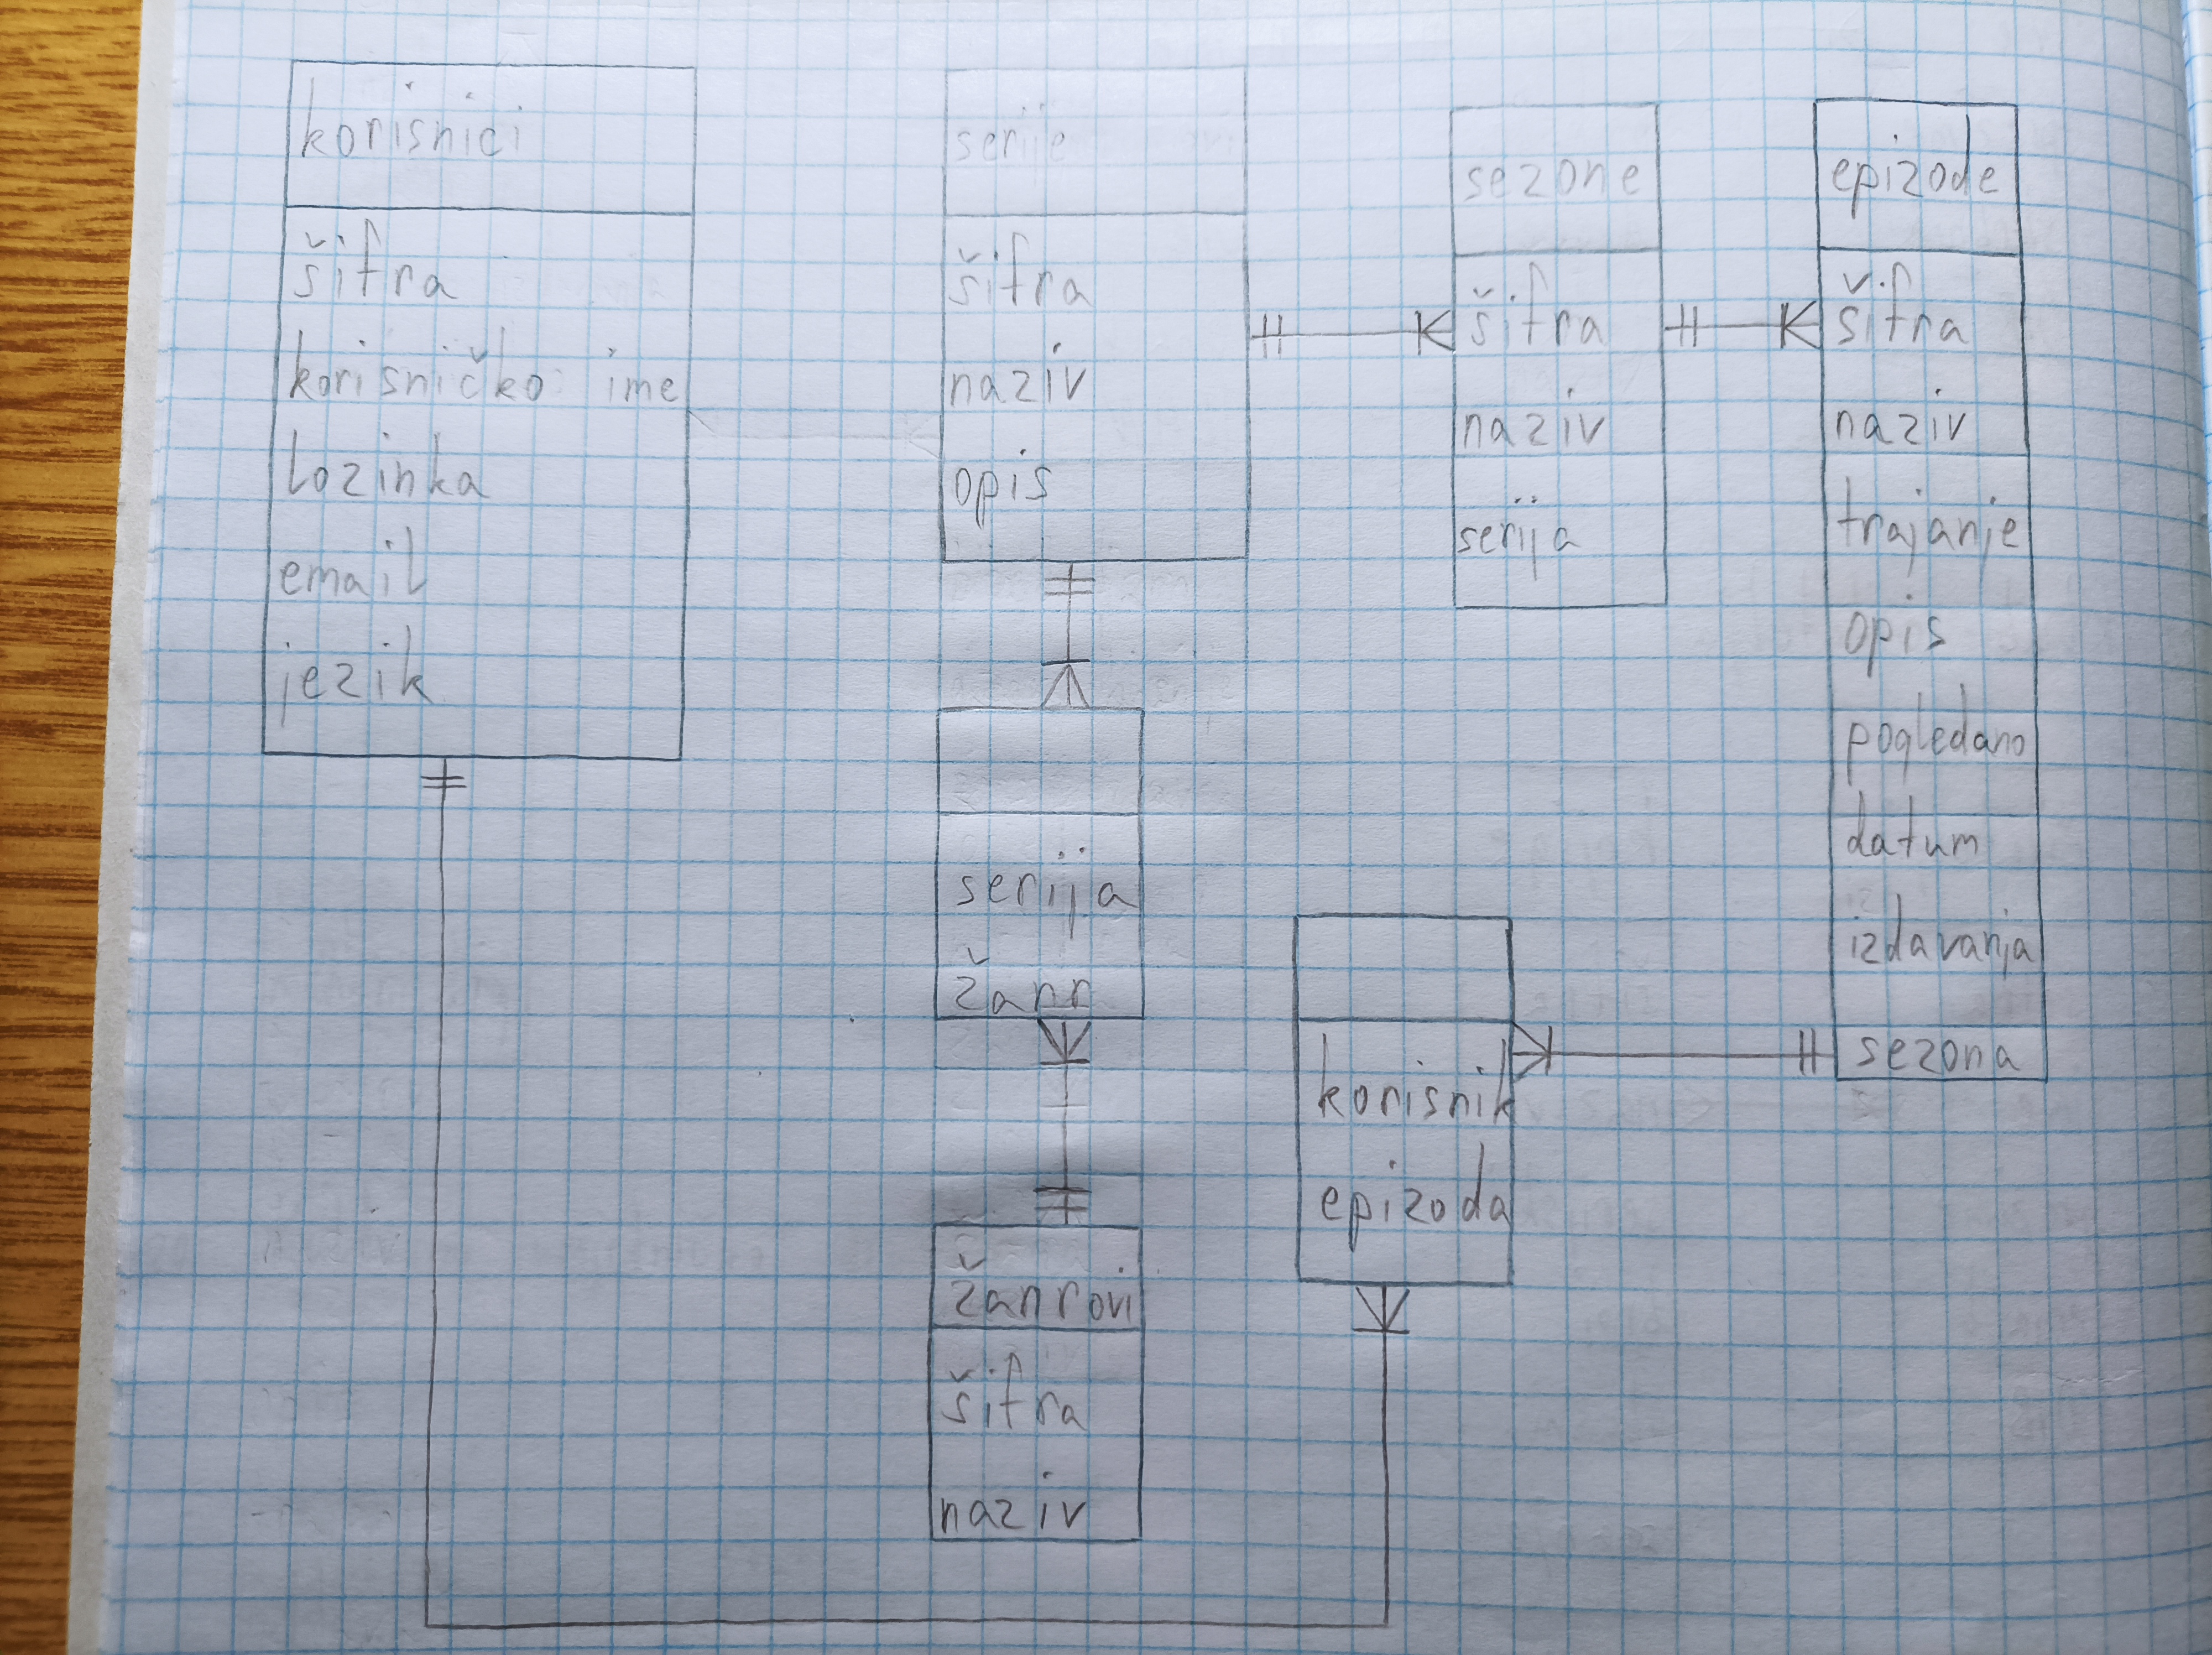 korisnici
šifra
korisničko ime
lozinka
email
jezik
serije
šifra
naziv
opis
sezone
šifra
naziv
serija
epizode
šifra
naziv
trajanje
opis
pogledano
datum
izdavanja
sezona
serija
žanr
korisnik
epizoda
žanrovi
šifra
naziv